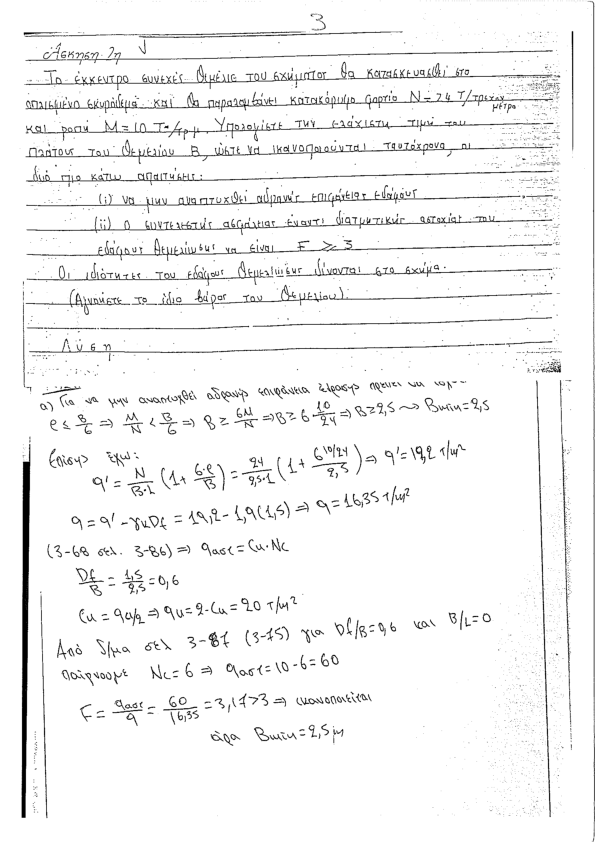 3
Άσκηση 7η
Το έκκεντρο συνεχές θεμέλιο του σχήματος θα κατασκευασθεί από
οπλισμένο σκυρόδεμα και θα παραλαμβάνει κατακόρυφο φορτίο N=24 T/τρεχον μέτρο
και ροπή M=10 Tm/τρμ. Υπολογίστε την ελάχιστη τιμή του
πλάτους του θεμελίου B, ώστε να ικανοποιούνται ταυτόχρονα, οι
δυό πιο κάτω απαιτήσεις:
(i) να μην αναπτυχθεί αδρανής επιφάνεια εδάφους
(ii) ο συντελεστής ασφάλειας έναντι διατμητικής αστοχίας του
εδάφους θεμελίωσης να είναι F ≥ 3
Οι ιδιότητες του εδάφους θεμελίωσης δίνονται στο σχήμα.
(Αγνοήστε το ίδιο βάρος του θεμελίου).
Λύση
α) Για να μην αναπτυχθεί αδρανής επιφάνεια έδρασης πρέπει να
e ≤ B/6 ⇒ M/N < B/6 ⇒ B ≥ 6M/N ⇒ B ≥ 6·10/24 ⇒ B ≥ 2,5 ⤳ Bmin = 2,5
Επίσης έχω:
q' = N/B·L (1 + 6·e/B) = 24/2,5·1 (1 + 6 10/24/2,5) ⇒ q' = 19,2 T/m²
q = q' - γμDf = 19,2 - 1,9(1,5) ⇒ q = 16,35 T/m²
(3-68 σελ. 3-86) ⇒ qαστ = Cu·Nc
Df/B = 1,5/2,5 = 0,6
Cu = qu/2 ⇒ qu = 2·Cu = 20 T/m²
Από δ/μα σελ 3-87 (3-75) για Df/B = 0,6 και B/L = 0
παίρνουμε Nc = 6 ⇒ qαστ = 10·6 = 60
F = qαστ/q = 60/16,35 = 3,17 > 3 ⇒ ικανοποιείται
άρα Bmin = 2,5 m